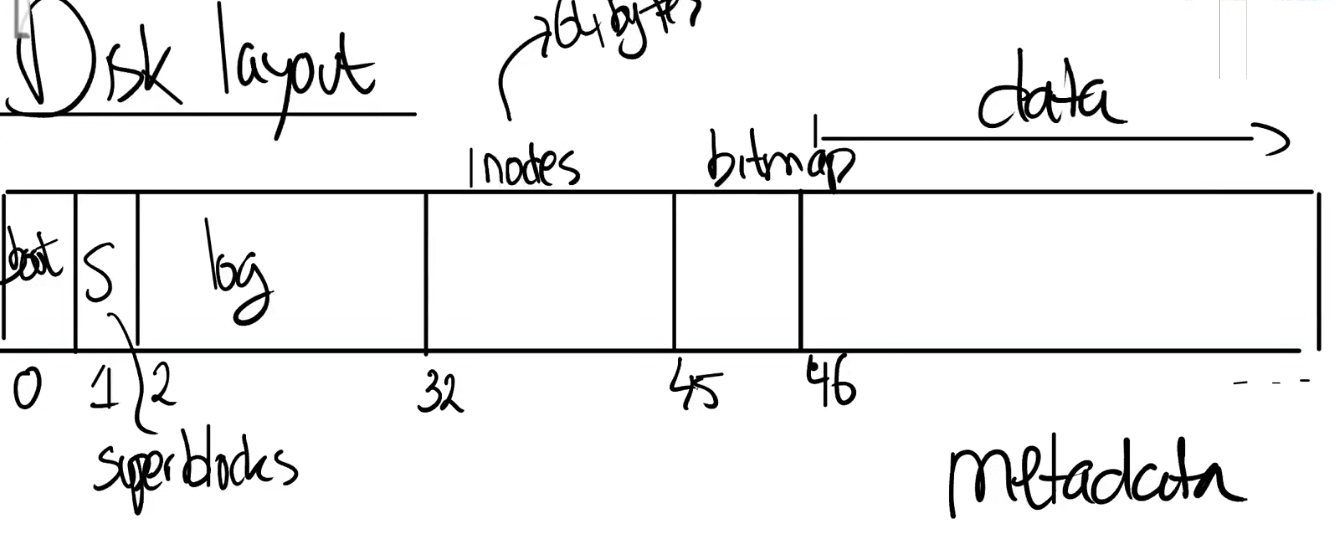 Disk layout
64 bytes
data
inodes
bitmap
boot
S
log
0 1 2 32 45 46 - - - -
superblocks
metadata